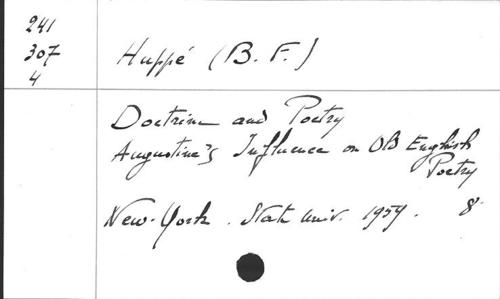 241
307
4
Huppé (B. F.)
Doctrine and Poetry
Augustine's Influence on Old English
Poetry
New-York. State Univ. 1959. 8°